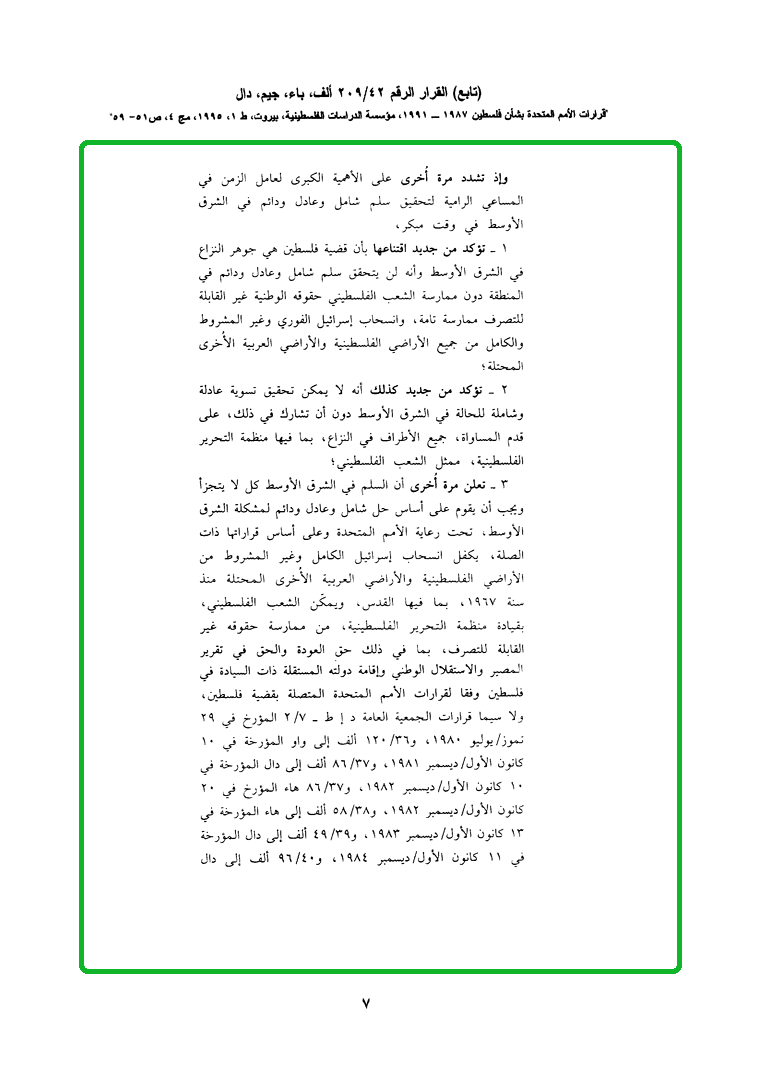 (تابع) القرار الرقم ٢٠٩/٤٢ ألف، باء، جيم، دال
"قرارات الأمم المتحدة بشأن فلسطين ١٩٨٧ ــ ١٩٩١، مؤسسة الدراسات الفلسطينية، بيروت، ط ١، ١٩٩٥، مج ٤، ص٥١- ٥٩"
وإذ تشدد مرة أُخرى على الأهمية الكبرى لعامل الزمن في
المساعي الرامية لتحقيق سلم شامل وعادل ودائم في الشرق
الأوسط في وقت مبكر،
١ ـ تؤكد من جديد اقتناعها بأن قضية فلسطين هي جوهر النزاع
في الشرق الأوسط وأنه لن يتحقق سلم شامل وعادل ودائم في
المنطقة دون ممارسة الشعب الفلسطيني حقوقه الوطنية غير القابلة
للتصرف ممارسة تامة، وانسحاب إسرائيل الفوري وغير المشروط
والكامل من جميع الأراضي الفلسطينية والأراضي العربية الأُخرى
المحتلة؛
٢ ـ تؤكد من جديد كذلك أنه لا يمكن تحقيق تسوية عادلة
وشاملة للحالة في الشرق الأوسط دون أن تشارك في ذلك، على
قدم المساواة، جميع الأطراف في النزاع، بما فيها منظمة التحرير
الفلسطينية، ممثل الشعب الفلسطيني؛
٣ ـ تعلن مرة أُخرى أن السلم في الشرق الأوسط كل لا يتجزأ
ويجب أن يقوم على أساس حل شامل وعادل ودائم لمشكلة الشرق
الأوسط، تحت رعاية الأمم المتحدة وعلى أساس قراراتها ذات
الصلة، يكفل انسحاب إسرائيل الكامل وغير المشروط من
الأراضي الفلسطينية والأراضي العربية الأُخرى المحتلة منذ
سنة ١٩٦٧، بما فيها القدس، ويمكّن الشعب الفلسطيني،
بقيادة منظمة التحرير الفلسطينية، من ممارسة حقوقه غير
القابلة للتصرف، بما في ذلك حق العودة والحق في تقرير
المصير والاستقلال الوطني وإقامة دولته المستقلة ذات السيادة في
فلسطين وفقا لقرارات الأمم المتحدة المتصلة بقضية فلسطين،
ولا سيما قرارات الجمعية العامة د إ ط ـ ٢/٧ المؤرخ في ٢٩
تموز/يوليو ١٩٨٠، و١٢٠/٣٦ ألف إلى واو المؤرخة في ١٠
كانون الأول/ديسمبر ١٩٨١، و٨٦/٣٧ ألف إلى دال المؤرخة في
١٠ كانون الأول/ديسمبر ١٩٨٢، و٨٦/٣٧ هاء المؤرخ في ٢٠
كانون الأول/ديسمبر ١٩٨٢، و٥٨/٣٨ ألف إلى هاء المؤرخة في
١٣ كانون الأول/ديسمبر ١٩٨٣، و٤٩/٣٩ ألف إلى دال المؤرخة
في ١١ كانون الأول/ديسمبر ١٩٨٤، و٩٦/٤٠ ألف إلى دال
٧